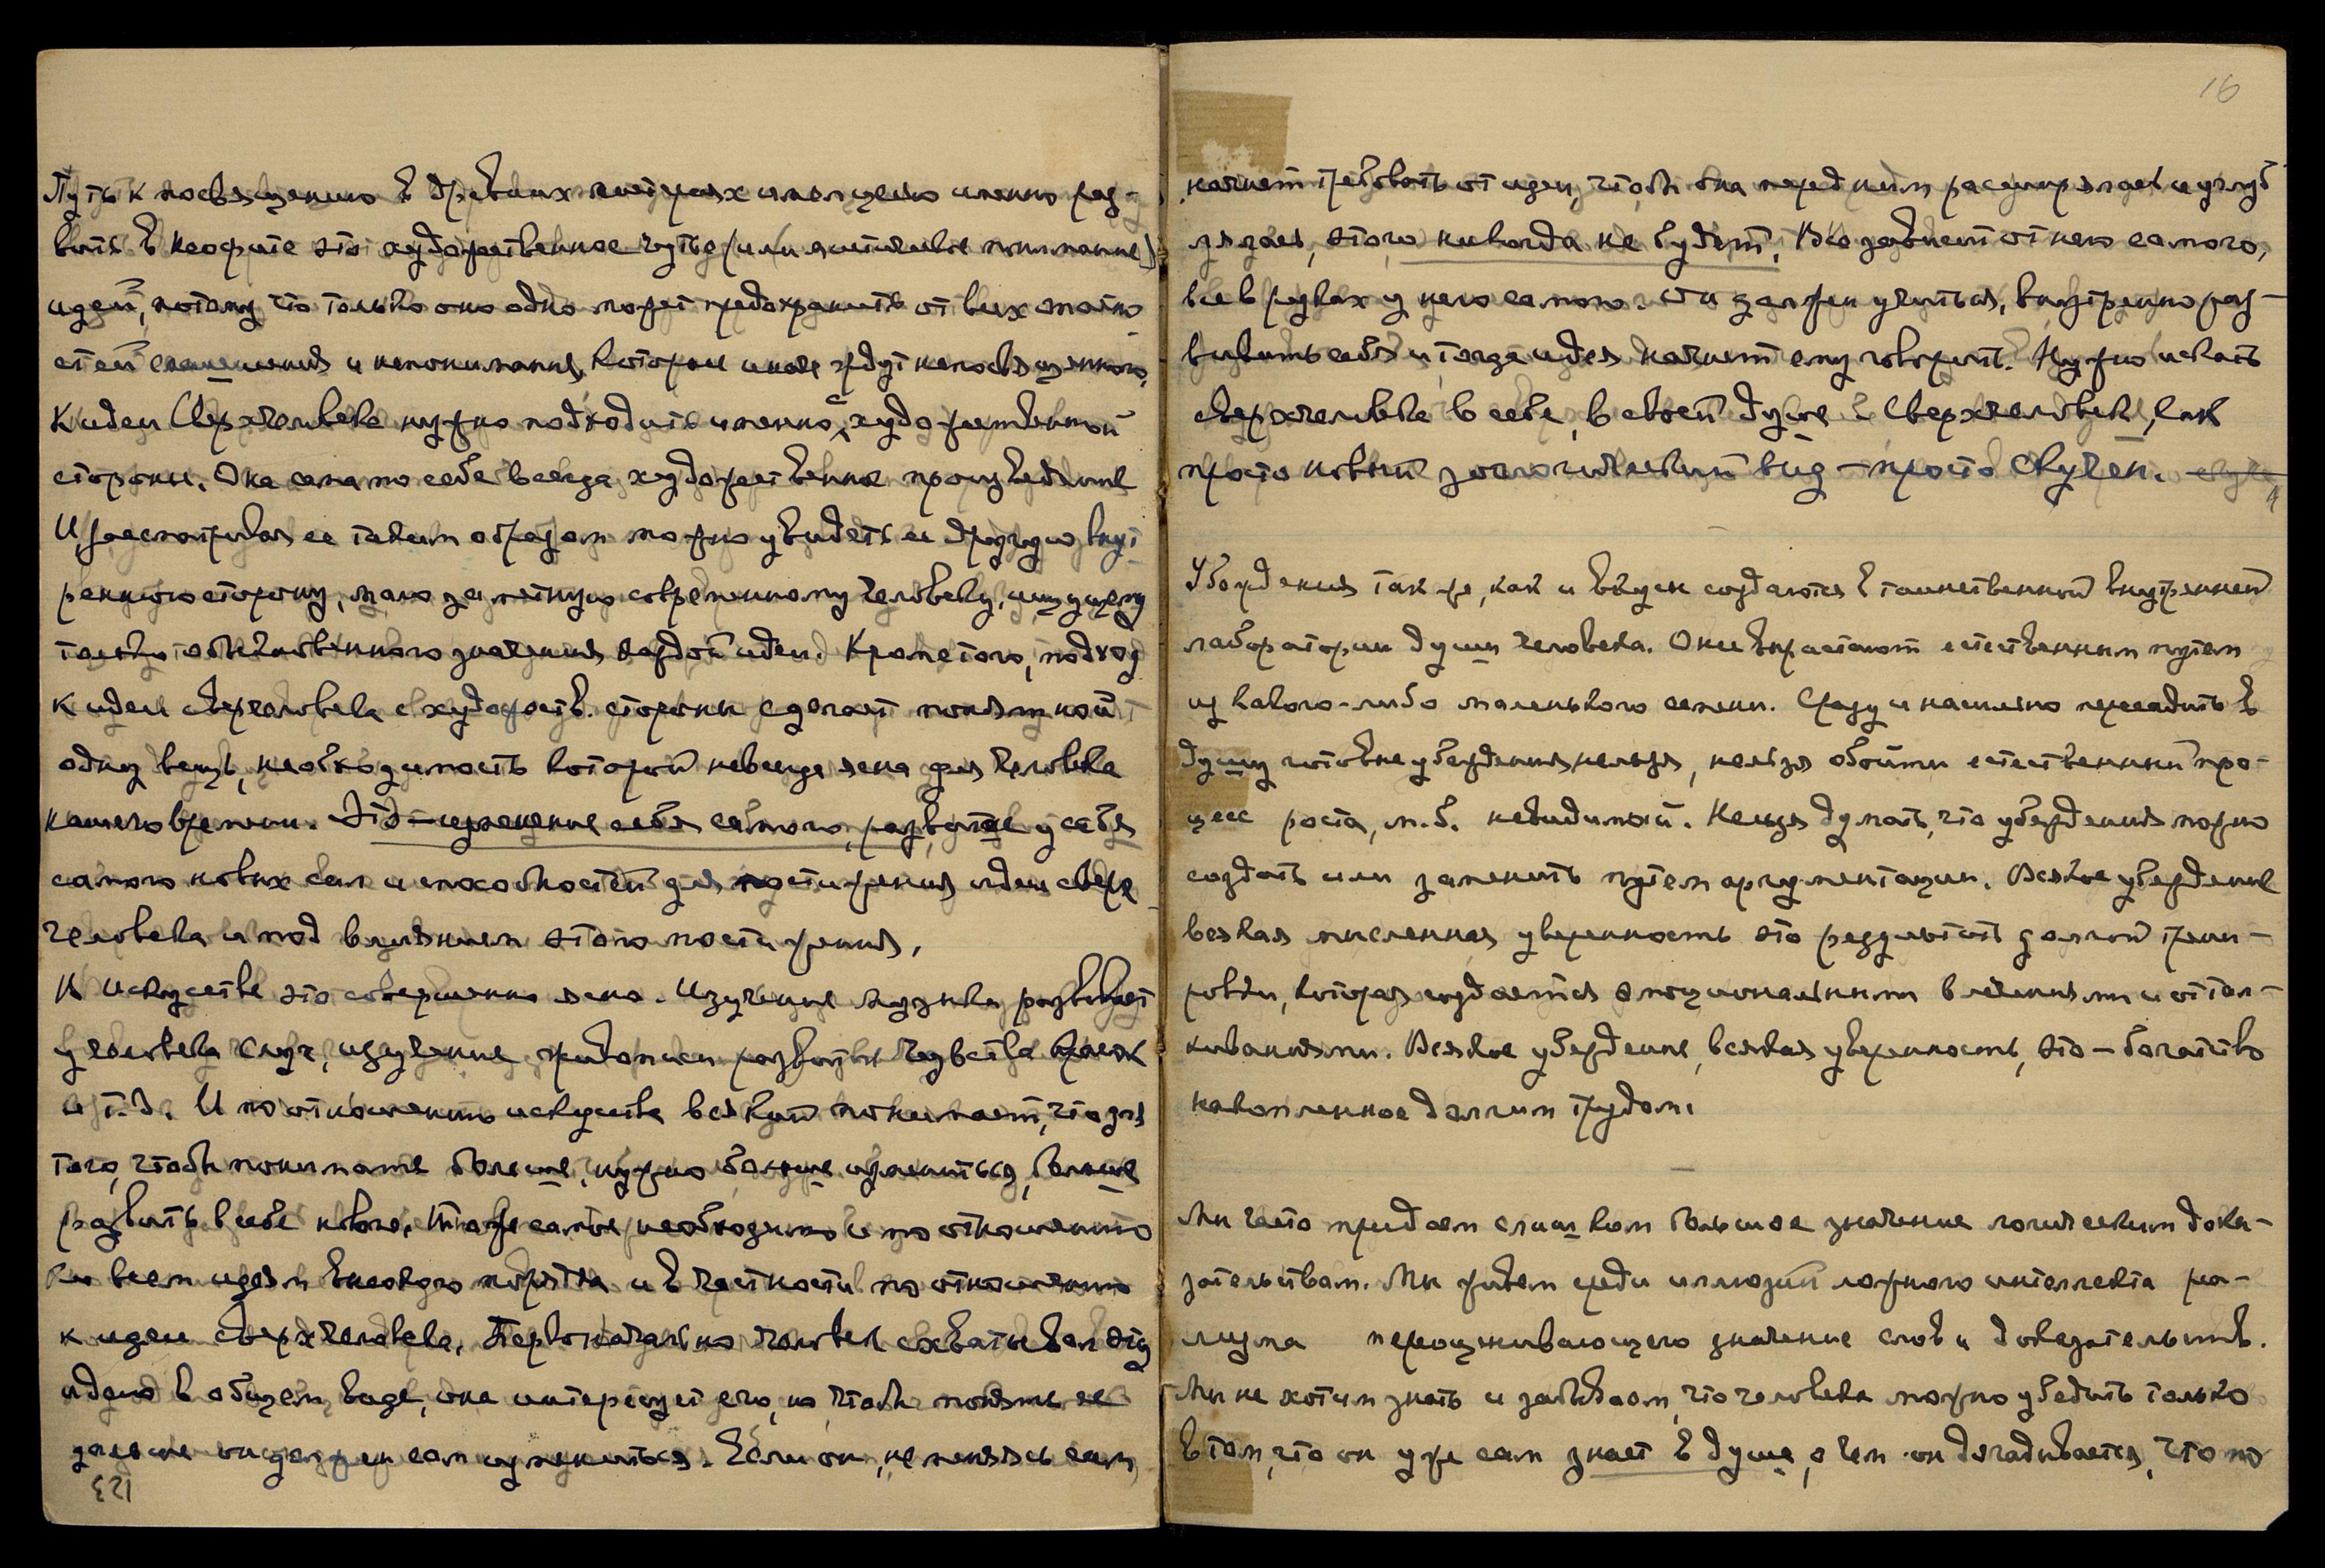 Путь к посвящению в древних мистериях имел целью именно раз-
вить в неофите это художественное чутье (или мистическое понимание)
идей, потому что только оно одно может предохранить от всех опасно-
стей смешения и непонимания, которые иначе ждут непосвященного.
К идеи Сверхчеловека нужно подходить именно с художественной
стороны. Она сама по себе всегда художественное произведение
И рассматривая ее таким образом можно увидеть ее другую внут-
реннюю сторону, мало заметную современному человеку, ищущему
только общественного значения каждой идеи. Кроме того, подход
к идеи сверхчеловека с художеств. стороны сделает понятной
одну вещь, необходимость которой не всегда ясна для человека
нашего времени. Это – изменение себя самого, развитие у себя
самого новых сил и способностей для постижения идеи сверх-
человека и под влиянием этого постижения.
В искусстве это совершенно ясно. Изучение музыки развивает
у человека слух, изучение живописи развить чувства красок
и т.д. И по отношению искусства всякий понимает, что для
того, чтобы понимать больше, нужно больше измениться, больше
развить в себе нового. То же самое необходимо и по отношению
ко всем идеям высокого порядка и в частности по отношению
к идеи сверхчеловека. Первоначально человек схватывает эту
идею в общем виде, она интересует его, но чтобы понять ее
дальше он должен сам измениться. Если он, не меняясь сам,
123
16
начнет требовать от идеи, чтобы она перед ним расширялась и углуб
лялась, этого никогда не будет. Все зависит от него самого,
все в руках у него самого. Он должен учиться, внутренно раз-
вивать себя и тогда идея начнет ему говорить. Нужно искать
сверхчеловека в себе, в своей душе. Сверхчеловек, как
просто новый зоологический вид – просто скучен.
Убеждения так же, как и вкусы создаются в таинственной внутренней
лаборатории души человека. Они вырастают естественным путем
из какого-либо маленького семени. Сразу и насильно пересадить в
душу готовые убеждения нельзя, нельзя обойти естественный про-
цесс роста, м.б. невидимый. Нельзя думать, что убеждения можно
создать или заменить путем аргументации. Всякое убеждение
всякая мысленная уверенность это результат долгой трени-
ровки, которая создается эмоциональными влечениями и оттал-
киваниями. Всякое убеждение, всякая уверенность, это – богатство
накопленное долгим трудом.
Мы часто придаем слишком большое значение логическим дока-
зательствам. Мы живем среди иллюзий ложного интеллектуа ра-
лизма переоценивающего значение слов и доказательств.
Мы не хотим знать и забываем, что человека можно убедить только
в том, что он уже сам знает в душе, о чем он догадывается, что по